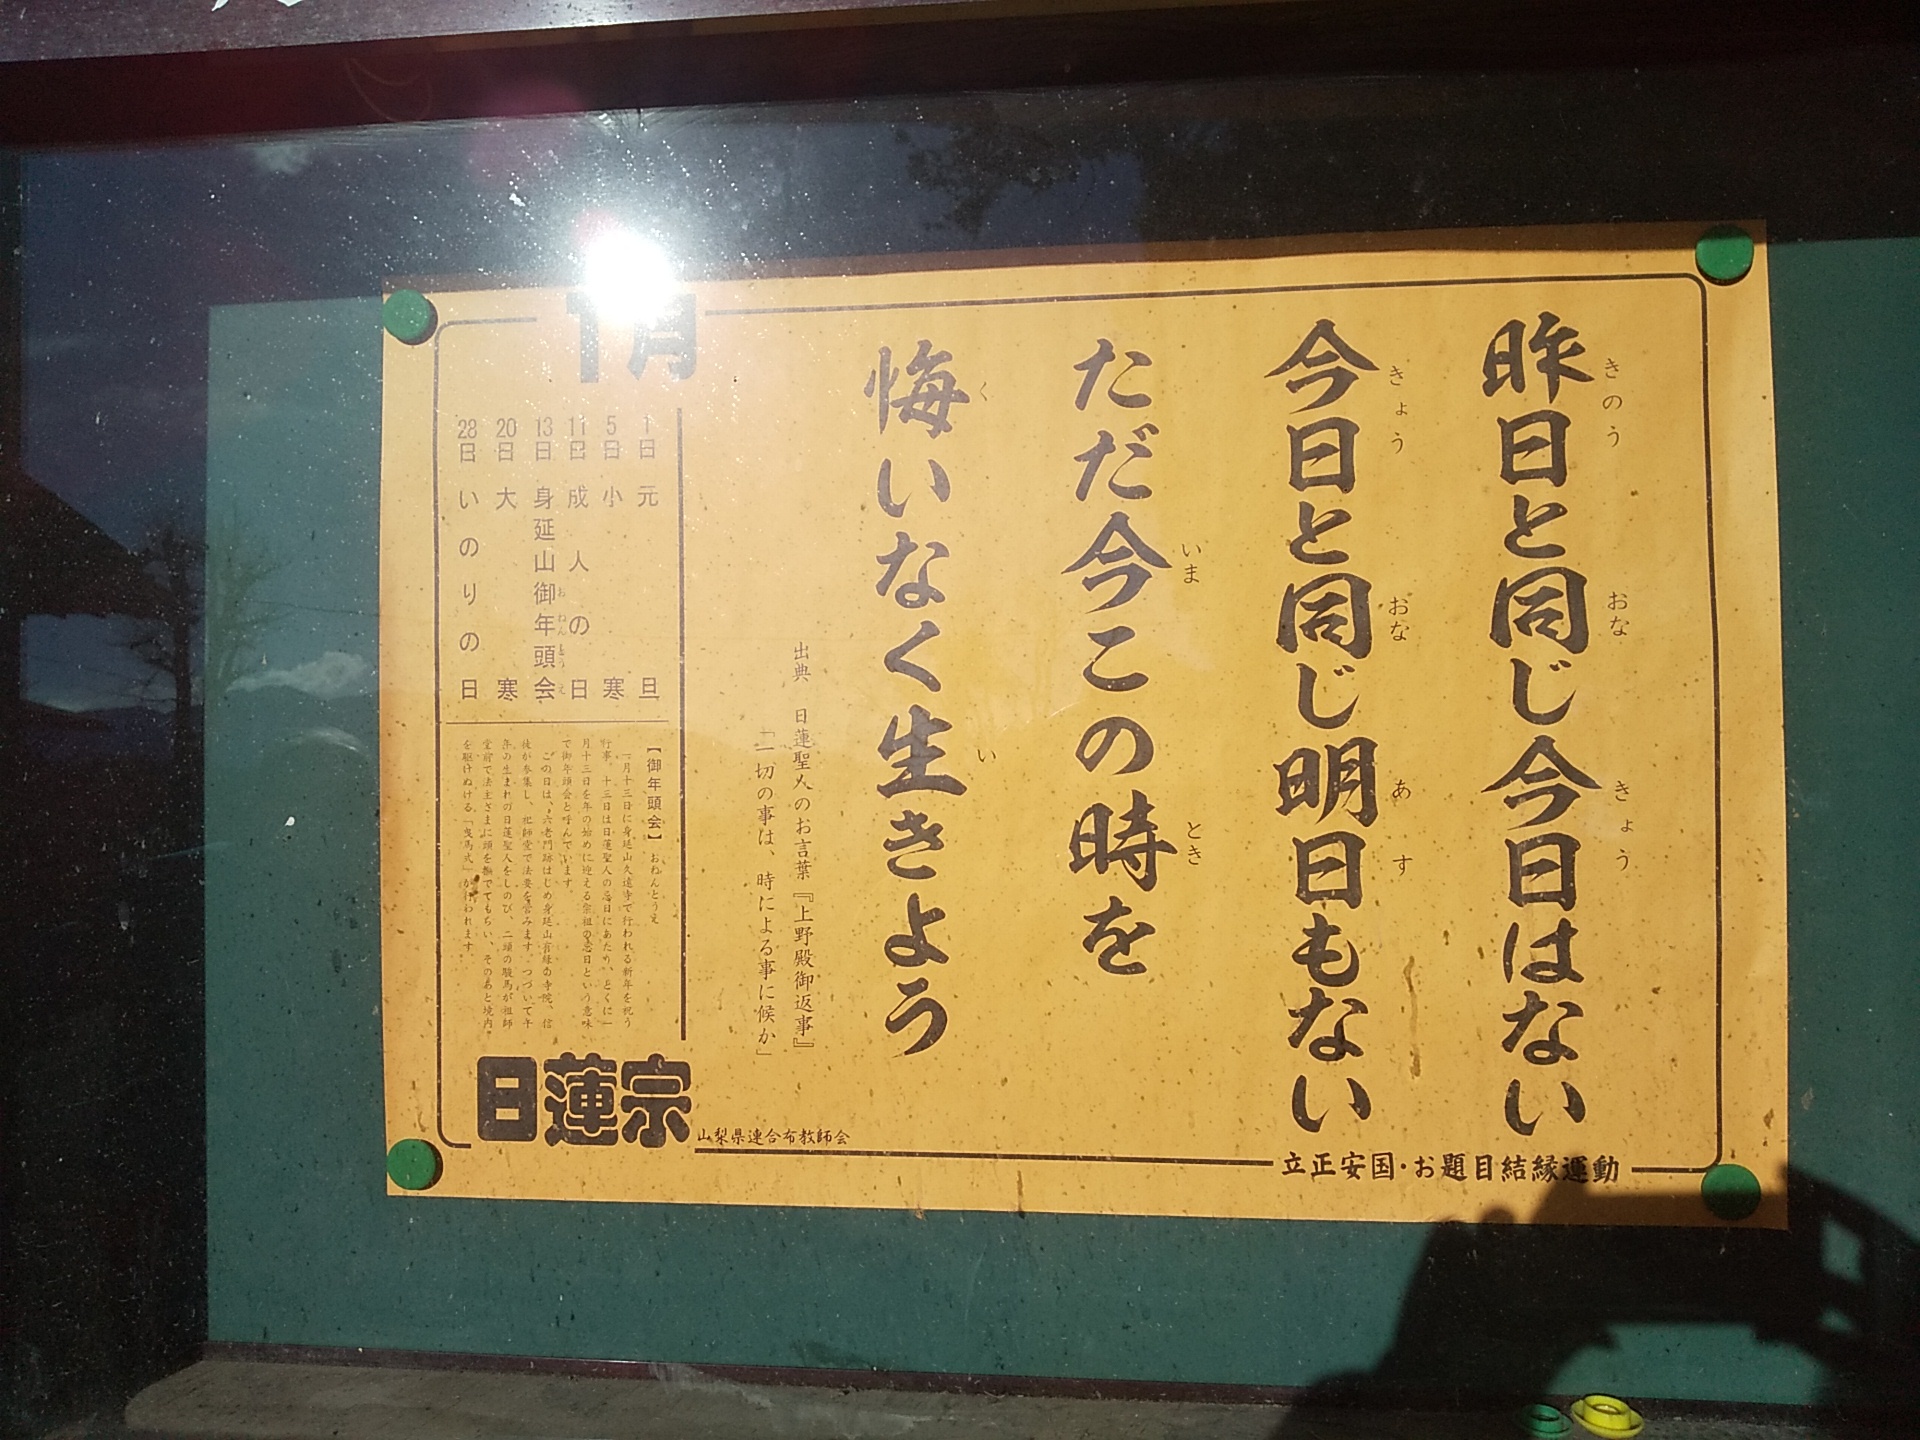 昨日と同じ今日はない
きのう おな きょう
今日と同じ明日もない
きょう おな あす
ただ今この時を
いま とき
悔いなく生きよう
く い
出典 日蓮聖人のお言葉『上野殿御返事』
「一切の事は、時による事に候か」
1月
1日 元旦
5日 小寒
11日 成人の日
13日 身延山御年頭会
おねんとうえ
20日 大寒
28日 いのりの日
【御年頭会】 おねんとうえ
一月十三日に身延山久遠寺で行われる新年を祝う
行事。十三日は日蓮聖人の忌日にあたり、とくに一
月十三日を年の始めに迎える宗祖の忌日という意味
で御年頭会と呼んでいます。
この日は、六老門跡はじめ身延山有縁の寺院、信
徒が参集し、祖師堂で法要を営みます。つづいて午
年の生まれの日蓮聖人をしのび、二頭の駿馬が祖師
堂前で法主さまに頭を撫でてもらい、そのあと境内
を駆けぬける「曳馬式」が行われます。
日蓮宗
山梨県連合布教師会
立正安国・お題目結縁運動